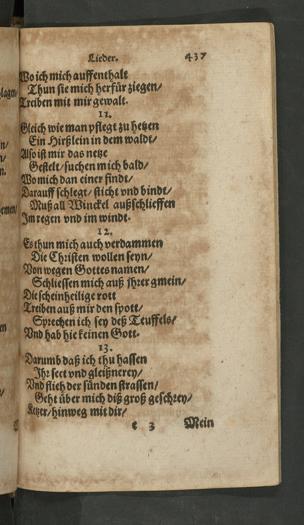 Lieder. 437
Wo ich mich auffenthalt
Thun sie mich herfür ziegen/
Treiben mit mir gewalt.
11.
Gleich wie man pflegt zu hetzen
Ein Hirßlein in dem waldt/
Also ist mir das netze
Gestelt/suchen mich bald/
Wo mich dan einer findt/
Darauff schlegt/ sticht vnd bindt/
Muß all Winckel außschlieffen
Im regen vnd im windt.
12.
Es thun mich auch verdammen
Die Christen wollen seyn/
Von wegen Gottes namen/
Schliessen mich auß jhrer gmein/
Die scheinheilige rott
Treiben auß mir den spott/
Sprechen ich sey deß Teuffels/
Vnd hab hie keinen Gott.
13.
Darumb daß ich thu hassen
Ihr sect vnd gleißnerey/
Vnd flieh der sünden strassen/
Geht über mich diß groß geschrey/
Ketzer/hinweg mit dir/
e 3 Mein